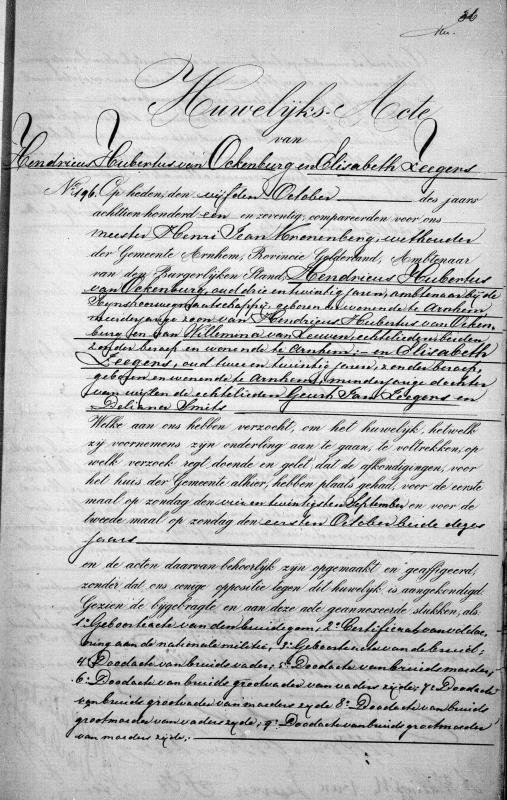 36
Huwelijks-Acte
van
Hendricus Hubertus van Ockenburg en Elisabeth Leegens
No. 196. Op heden, den vijfden October des jaars
achttien honderd een en zeventig, compareerden voor ons
meester Henri Jean Kronenberg, wethouder
der Gemeente Arnhem, Provincie Gelderland, Ambtenaar
van den Burgerlijken Stand, Hendricus Hubertus
van Ockenburg, oud drie en twintig jaren, ambtenaar bij de
Rijnspoorwegmaatschappij, geboren en wonende te Arnhem
minderjarige zoon van Hendricus Hubertus van Ocken-
burg en van Willemina van Leuven, echtelieden beiden
zonder beroep en wonende te Arnhem; en Elisabeth
Leegens, oud twee en twintig jaren, zonder beroep,
geboren en wonende te Arnhem, minderjarige dochter
van wijlen de echtelieden Geurt Jan Leegens en
Smits
Welke aan ons hebben verzocht, om het huwelijk, hetwelk
zij voornemens zijn onderling aan te gaan, te voltrekken, op
welk verzoek regt doende en gelet, dat de afkondigingen, voor
het huis der Gemeente alhier, hebben plaats gehad, voor de eerste
maal op zondag den vier en twintigsten September en voor de
tweede maal op zondag den eersten October beide dezes
jaars
en de acten daarvan behoorlijk zijn opgemaakt en geaffigeerd,
zonder dat ons eenige oppositie tegen dit huwelijk is aangekondigd.
Gezien de bijgebragte en aan deze acte geannexeerde stukken, als
1o. Geboorteacte van den bruidegom; 2o. Certificaat van voldoe-
ning aan de nationale militie; 3o. Geboorteacte van de bruid;
4o. Doodacte van bruids vader; 5o. Doodacte van bruids moeder;
6o. Doodacte van bruids grootvader van vaders zijde; 7o. Doodacte
van bruids grootvader van moeders zijde 8o. Doodacte van bruids
grootmoeder van vaders zijde; 9o. Doodacte van bruids grootmoeder
van moeders zijde;